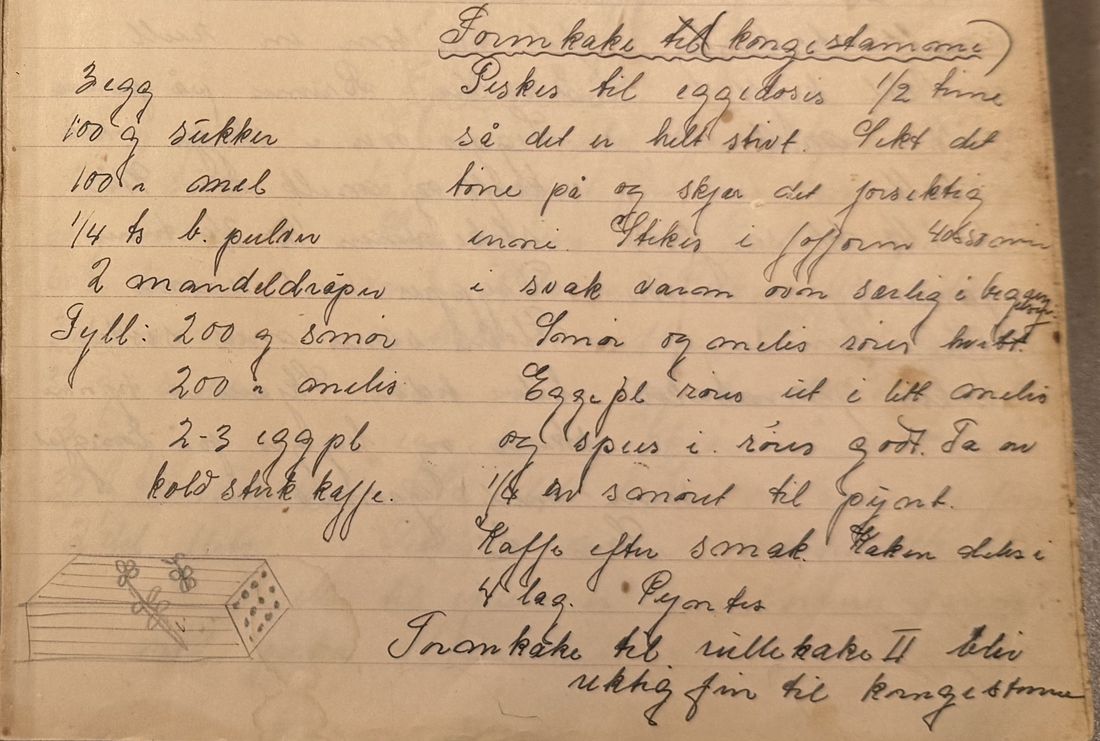 Formkake til (kongestamme)
3 egg
100 g sukker
100 " mel
1/4 ts b. pulver
2 mandeldråper
Fyll: 200 g smør
200 " melis
2-3 eggpl
kold sterk kaffe.
Piskes til eggedosis 1/2 time
så det er helt stivt. Sikt det
tøne på og skjær det forsiktig
inni. Stekes i form 40 50 min
i svak varm ovn særlig i
Smør og melis røres hvitt.
Eggepl røres ut i litt melis
og spees i. røres godt. Ta av
1/4 av smøret til pynt.
Kaffe efter smak. Kaken deles i
4 lag. Pyntes
Formkake til rullekake II blir
riktig fin til kongestamme